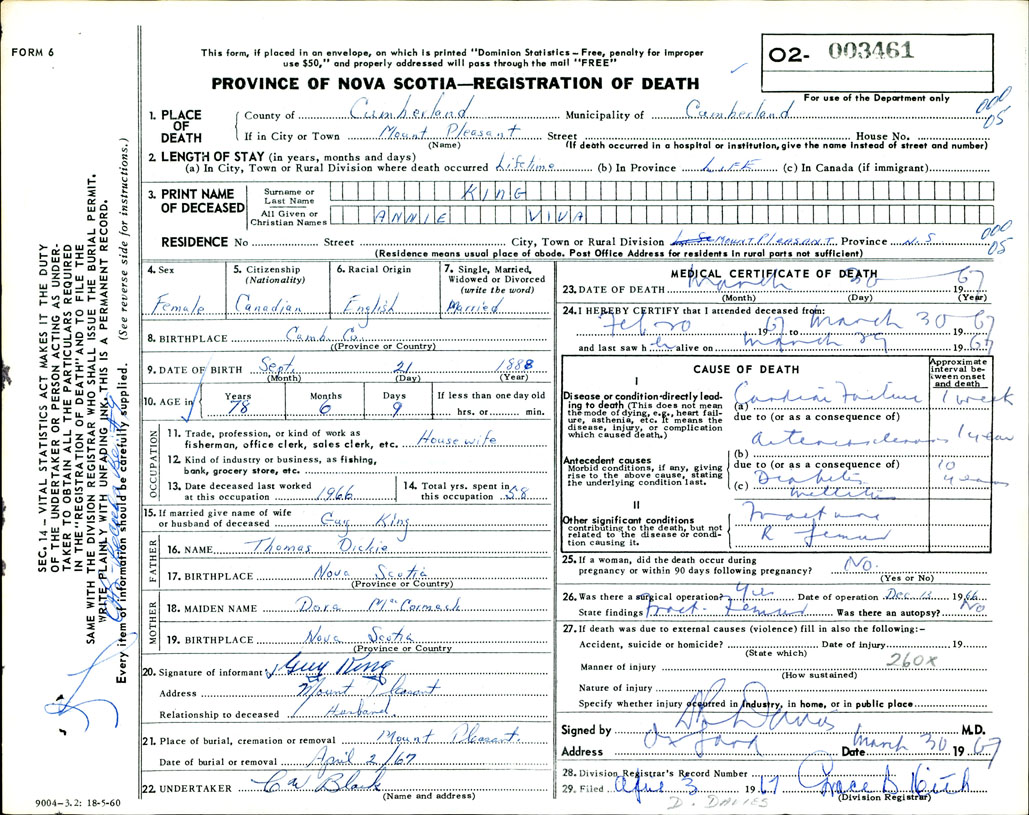 FORM 6
This form, if placed in an envelope, on which is printed "Dominion Statistics – Free, penalty for improper
use $50," and properly addressed will pass through the mail "FREE"
O2- 003461
PROVINCE OF NOVA SCOTIA—REGISTRATION OF DEATH
For use of the Department only
1. PLACE OF DEATH
County of Cumberland Municipality of Cumberland 000 05
If in City or Town Mount Pleasant Street House No.
(Name) (If death occurred in a hospital or institution, give the name instead of street and number)
2. LENGTH OF STAY (in years, months and days)
(a) In City, Town or Rural Division where death occurred Lifetime (b) In Province LIFE (c) In Canada (if immigrant)
3. PRINT NAME OF DECEASED
Surname or Last Name KING
All Given or Christian Names ANNIE VIVA
RESIDENCE No Street City, Town or Rural Division MOUNT PLEASANT Province N.S 000 05
(Residence means usual place of abode. Post Office Address for residents in rural parts not sufficient)
4. Sex
Female
5. Citizenship
(Nationality)
Canadian
6. Racial Origin
English
7. Single, Married,
Widowed or Divorced
(write the word)
Married
8. BIRTHPLACE Cumb. Co.
(Province or Country)
9. DATE OF BIRTH Sept. 21 1888
(Month) (Day) (Year)
10. AGE in
Years Months Days If less than one day old
78 6 9 hrs. or min.
OCCUPATION
11. Trade, profession, or kind of work as
fisherman, office clerk, sales clerk, etc. Housewife
12. Kind of industry or business, as fishing,
bank, grocery store, etc.
13. Date deceased last worked
at this occupation 1966
14. Total yrs. spent in
this occupation 58
15. If married give name of wife
or husband of deceased Guy King
FATHER
16. NAME Thomas Dickie
17. BIRTHPLACE Nova Scotia
(Province or Country)
MOTHER
18. MAIDEN NAME Dora MacCormack
19. BIRTHPLACE Nova Scotia
(Province or Country)
20. Signature of informant Guy King
Address Mount Pleasant
Relationship to deceased Husband.
21. Place of burial, cremation or removal Mount Pleasant.
Date of burial or removal April 2/67
22. UNDERTAKER C W Black
(Name and address)
MEDICAL CERTIFICATE OF DEATH
23. DATE OF DEATH March 30 1967
(Month) (Day) (Year)
24. I HEREBY CERTIFY that I attended deceased from:
Feb 20 1967 to March 30 1967
and last saw her alive on March 29 1967
CAUSE OF DEATH
Approximate
interval be-
tween onset
and death
I
Disease or condition directly lead-
ing to death (This does not mean
the mode of dying, e.g., heart fail-
ure, asthenia, etc. It means the
disease, injury, or complication
which caused death.)
(a) Cardiac Failure 1 week
due to (or as a consequence of)
Antecedent causes
Morbid conditions, if any, giving
rise to the above cause, stating
the underlying condition last.
(b) arteriosclerosis 1 year
due to (or as a consequence of)
(c) Diabetes Mellitis 10 years
II
Other significant conditions
contributing to the death, but not
related to the disease or condi-
tion causing it.
Fracture
R Femur
25. If a woman, did the death occur during
pregnancy or within 90 days following pregnancy? No.
(Yes or No)
26. Was there a surgical operation? Yes Date of operation Dec 13 1966
State findings Fract. Femur Was there an autopsy? No
27. If death was due to external causes (violence) fill in also the following:–
Accident, suicide or homicide? Date of injury 19
(State which)
Manner of injury 260x
(How sustained)
Nature of injury
Specify whether injury occurred in industry, in home, or in public place
Signed by Davies M.D.
Address Oxford Date March 30 1967
28. Division Registrar's Record Number
29. Filed April 3 1967 Grace B
(Division Registrar)
D. DAVIES
9004-3.2: 18-5-60
SEC. 14 – VITAL STATISTICS ACT MAKES IT THE DUTY
OF THE UNDERTAKER OR PERSON ACTING AS UNDER-
TAKER TO OBTAIN ALL THE PARTICULARS REQUIRED
IN THE "REGISTRATION OF DEATH" AND TO FILE THE
SAME WITH THE DIVISION REGISTRAR WHO SHALL ISSUE THE BURIAL PERMIT.
WRITE PLAINLY WITH UNFADING INK. THIS IS A PERMANENT RECORD.
Every item of information should be carefully supplied. (See reverse side for instructions.)